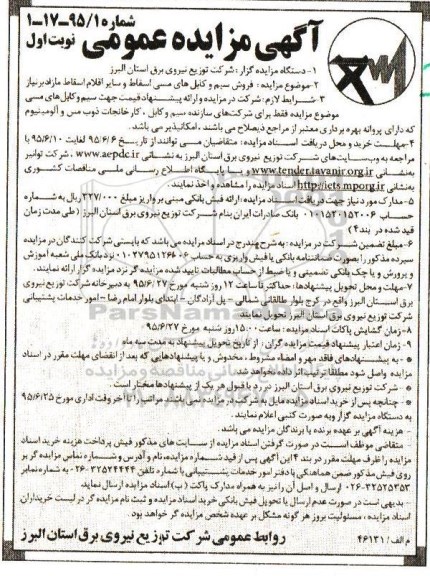 شماره ۹۵/۱-۱۷-۱
آگهی مزایده عمومی نوبت اول
۱- دستگاه مزایده گزار: شرکت توزیع نیروی برق استان البرز
۲- موضوع مزایده: فروش سیم و کابل های مسی اسقاط و سایر اقلام اسقاط مازاد بر نیاز
۳- شرایط لازم: شرکت در مزایده و ارائه پیشنهاد قیمت جهت سیم و کابل های مسی
موضوع مزایده فقط برای شرکت‌های سازنده سیم و کابل، کارخانجات ذوب مس و آلومینیوم
که دارای پروانه بهره برداری معتبر از مراجع ذیصلاح می باشند، امکانپذیر می باشد.
۴- مهلت خرید و محل دریافت اسناد مزایده: متقاضیان می توانند از تاریخ ۹۵/۶/۶ لغایت ۹۵/۶/۱۰ با
مراجعه به وب‌سایت‌های شرکت توزیع نیروی برق استان البرز به نشانی www.aepdc.ir، شرکت توانیر
به نشانی www.tender.tavanir.org.ir و یا پایگاه اطلاع رسانی ملی مناقصات کشوری
به نشانی http://iets.mporg.ir اسناد مزایده را مشاهده و اخذ نمایند.
۵- مدارک مورد نیاز جهت دریافت اسناد مزایده: ارائه فیش بانکی مبنی بر واریز مبلغ ۳۲۷/۰۰۰ ریال به شماره
حساب ۰۱۰۱۵۳۱۵۲۰۰۶ بانک صادرات ایران بنام شرکت توزیع نیروی برق استان البرز (طی مدت زمان
قید شده در بند ۴)
۶- مبلغ تضمین شرکت در مزایده: به شرح مندرج در اسناد مزایده می باشد که بایستی شرکت کنندگان در مزایده
سپرده مذکور را بصورت ضمانتنامه بانکی یا فیش واریزی به حساب نزد بانک ملی شعبه آموزش
و پرورش و یا چک بانکی تضمینی و یا ضبط از حساب مطالبات تایید شده مزایده گر نزد مزایده گزار ارائه نمایند.
۷- مهلت و محل تحویل پیشنهادها: حداکثر تا ساعت ۱۲ روز شنبه مورخ ۹۵/۶/۲۷ به دبیرخانه شرکت توزیع نیروی
برق استان البرز واقع در کرج بلوار طالقانی شمالی - پل آزادگان - ابتدای بلوار امام رضا - امور خدمات پشتیبانی
شرکت توزیع نیروی برق استان البرز تحویل نمایند
۸- زمان گشایش پاکات اسناد مزایده: ساعت ۱۵:۰۰ روز شنبه مورخ ۹۵/۶/۲۷
۹- زمان اعتبار پیشنهاد قیمت مزایده گران: از تاریخ تحویل پیشنهاد به مدت سه ماه
- به پیشنهادهای فاقد مهر و امضاء، مشروط، مخدوش و یا پیشنهادهایی که بعد از انقضای مهلت مقرر در اسناد
مزایده واصل شود مطلقا ترتیب اثر داده نخواهد شد.
- شرکت توزیع نیروی برق استان البرز در رد یا قبول هر یک از پیشنهادها مختار است.
- چنانچه پس از خرید اسناد مزایده مایل به شرکت در مزایده نمی باشید مراتب را تا آخر وقت اداری مورخ ۹۵/۶/۲۵
به دستگاه مزایده گزار و به صورت کتبی اعلام نمایند.
- هزینه آگهی بر عهده برنده یا برندگان مزایده می باشد.
- متقاضی موظف است در صورت گرفتن اسناد مزایده از سایت های مذکور فیش پرداخت هزینه خرید اسناد
مزایده را ظرف مهلت مقرر در بند ۴ این آگهی پس از قید شماره مزایده، نام و آدرس و شماره تماس مزایده گر بر
روی فیش مذکور ضمن هماهنگی با دفتر امور خدمات پشتیبانی با شماره تلفن ۳۲۵۲۴۴۴۴-۰۲۶ به شماره نمابر
۳۲۵۲۵۳۵۳-۰۲۶ ارسال و اصل آن را نیز به همراه مدارک پاکت (ب) اسناد مزایده ارسال نماید
- بدیهی است در صورت عدم ارسال یا تحویل فیش بانکی خرید اسناد مزایده و ثبت نام مزایده گر در لیست خریداران
اسناد مزایده، مسئولیت بروز هر گونه مشکل بر عهده شخص مزایده گر خواهد بود.
م الف: ۴۶۱۳۱ روابط عمومی شرکت توزیع نیروی برق استان البرز